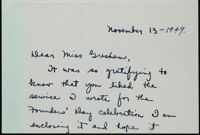 November 13-1949.
Dear Miss Gresham,
It was so gratifying to
know that you liked the
service I wrote for the
Founders' Day celebration I am
enclosing it and hope it